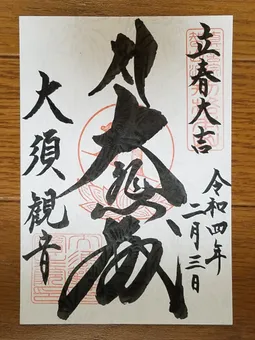 立春大吉
令和四年
二月三日
大悲殿
大須観音